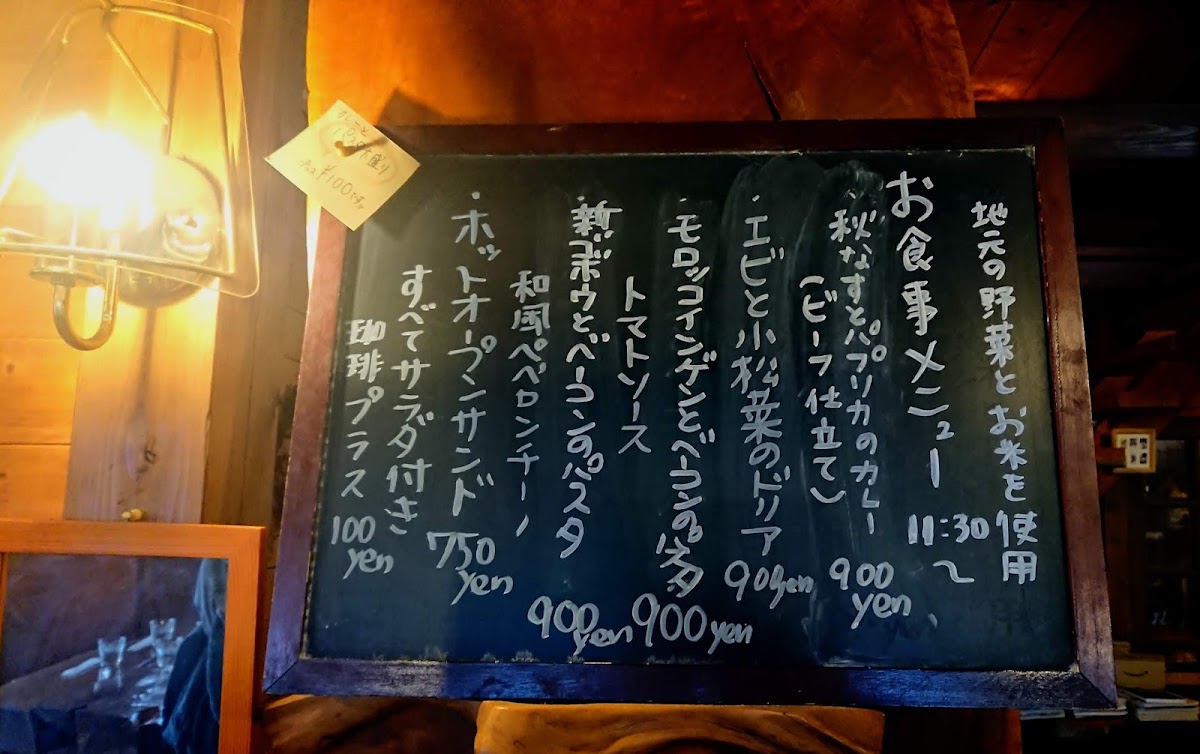 地元の野菜とお米を使用
お食事メニュー 11:30〜
・秋なすとパプリカのカレー
(ビーフ仕立て) 900yen
・エビと小松菜のドリア 900yen
・モロッコインゲンとベーコンのパスタ
トマトソース 900yen
・新ゴボウとベーコンのパスタ
和風ペペロンチーノ 900yen
・ホットオープンサンド 750yen
すべてサラダ付き
珈琲プラス 100yen
大盛り
¥100です